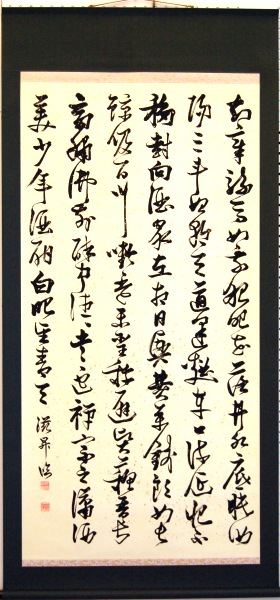 知章騎馬如乘船眼花落井水底眠汝
陽三斗始朝天道逢麴車口流涎恨不
移封向酒泉左相日興費萬錢飲如長
鯨吸百川銜杯樂聖稱避賢蘇晉長
齋繡佛前醉中往往愛逃禪宗之瀟灑
美少年酒酣白眼望青天 昇臨